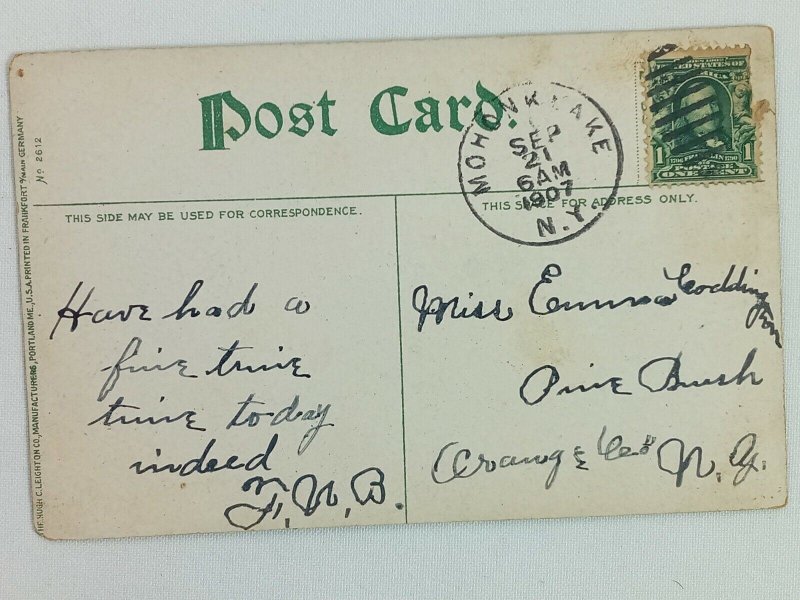 Post Card.
MOHONK LAKE
SEP
21
6AM
1907
N.Y.
UNITED STATES OF
1 1
FRANKLIN
POSTAGE
ONE CENT
THIS SIDE MAY BE USED FOR CORRESPONDENCE.
THIS SPACE FOR ADDRESS ONLY.
Have had a
fine trine
trine today
indeed
F.N.B.
Miss Emma Coddington
Pine Bush
Orange Co N.Y.
THE HUGH C. LEIGHTON CO., MANUFACTURERS, PORTLAND ME., U.S.A. PRINTED IN FRANKFORT a/MAIN GERMANY
No 2612